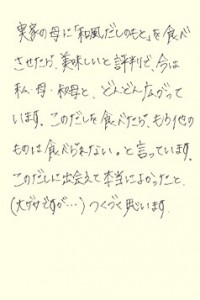 実家の母に「和風だしのもと」を食べ
させたら、美味しいと評判で、今は
私・母・叔母と、どんどん広がって
います。このだしを食べたら、もう他の
ものは食べられない。と言っています。
このだしに出会えて本当によかったと、
(大ゲサですが…)つくづく思います。